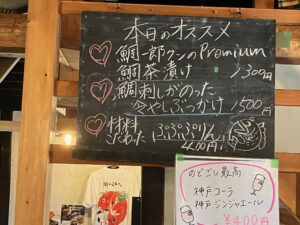 本日のオススメ
鯛一郎クンのPremium
鯛茶漬け 1300円
鯛刺しがのった
冷やしぶっかけ 1500円
材料
こだわった ぷりぷりん
400円
のどごし最高
神戸コーラ
神戸ジンジャエール
¥400円